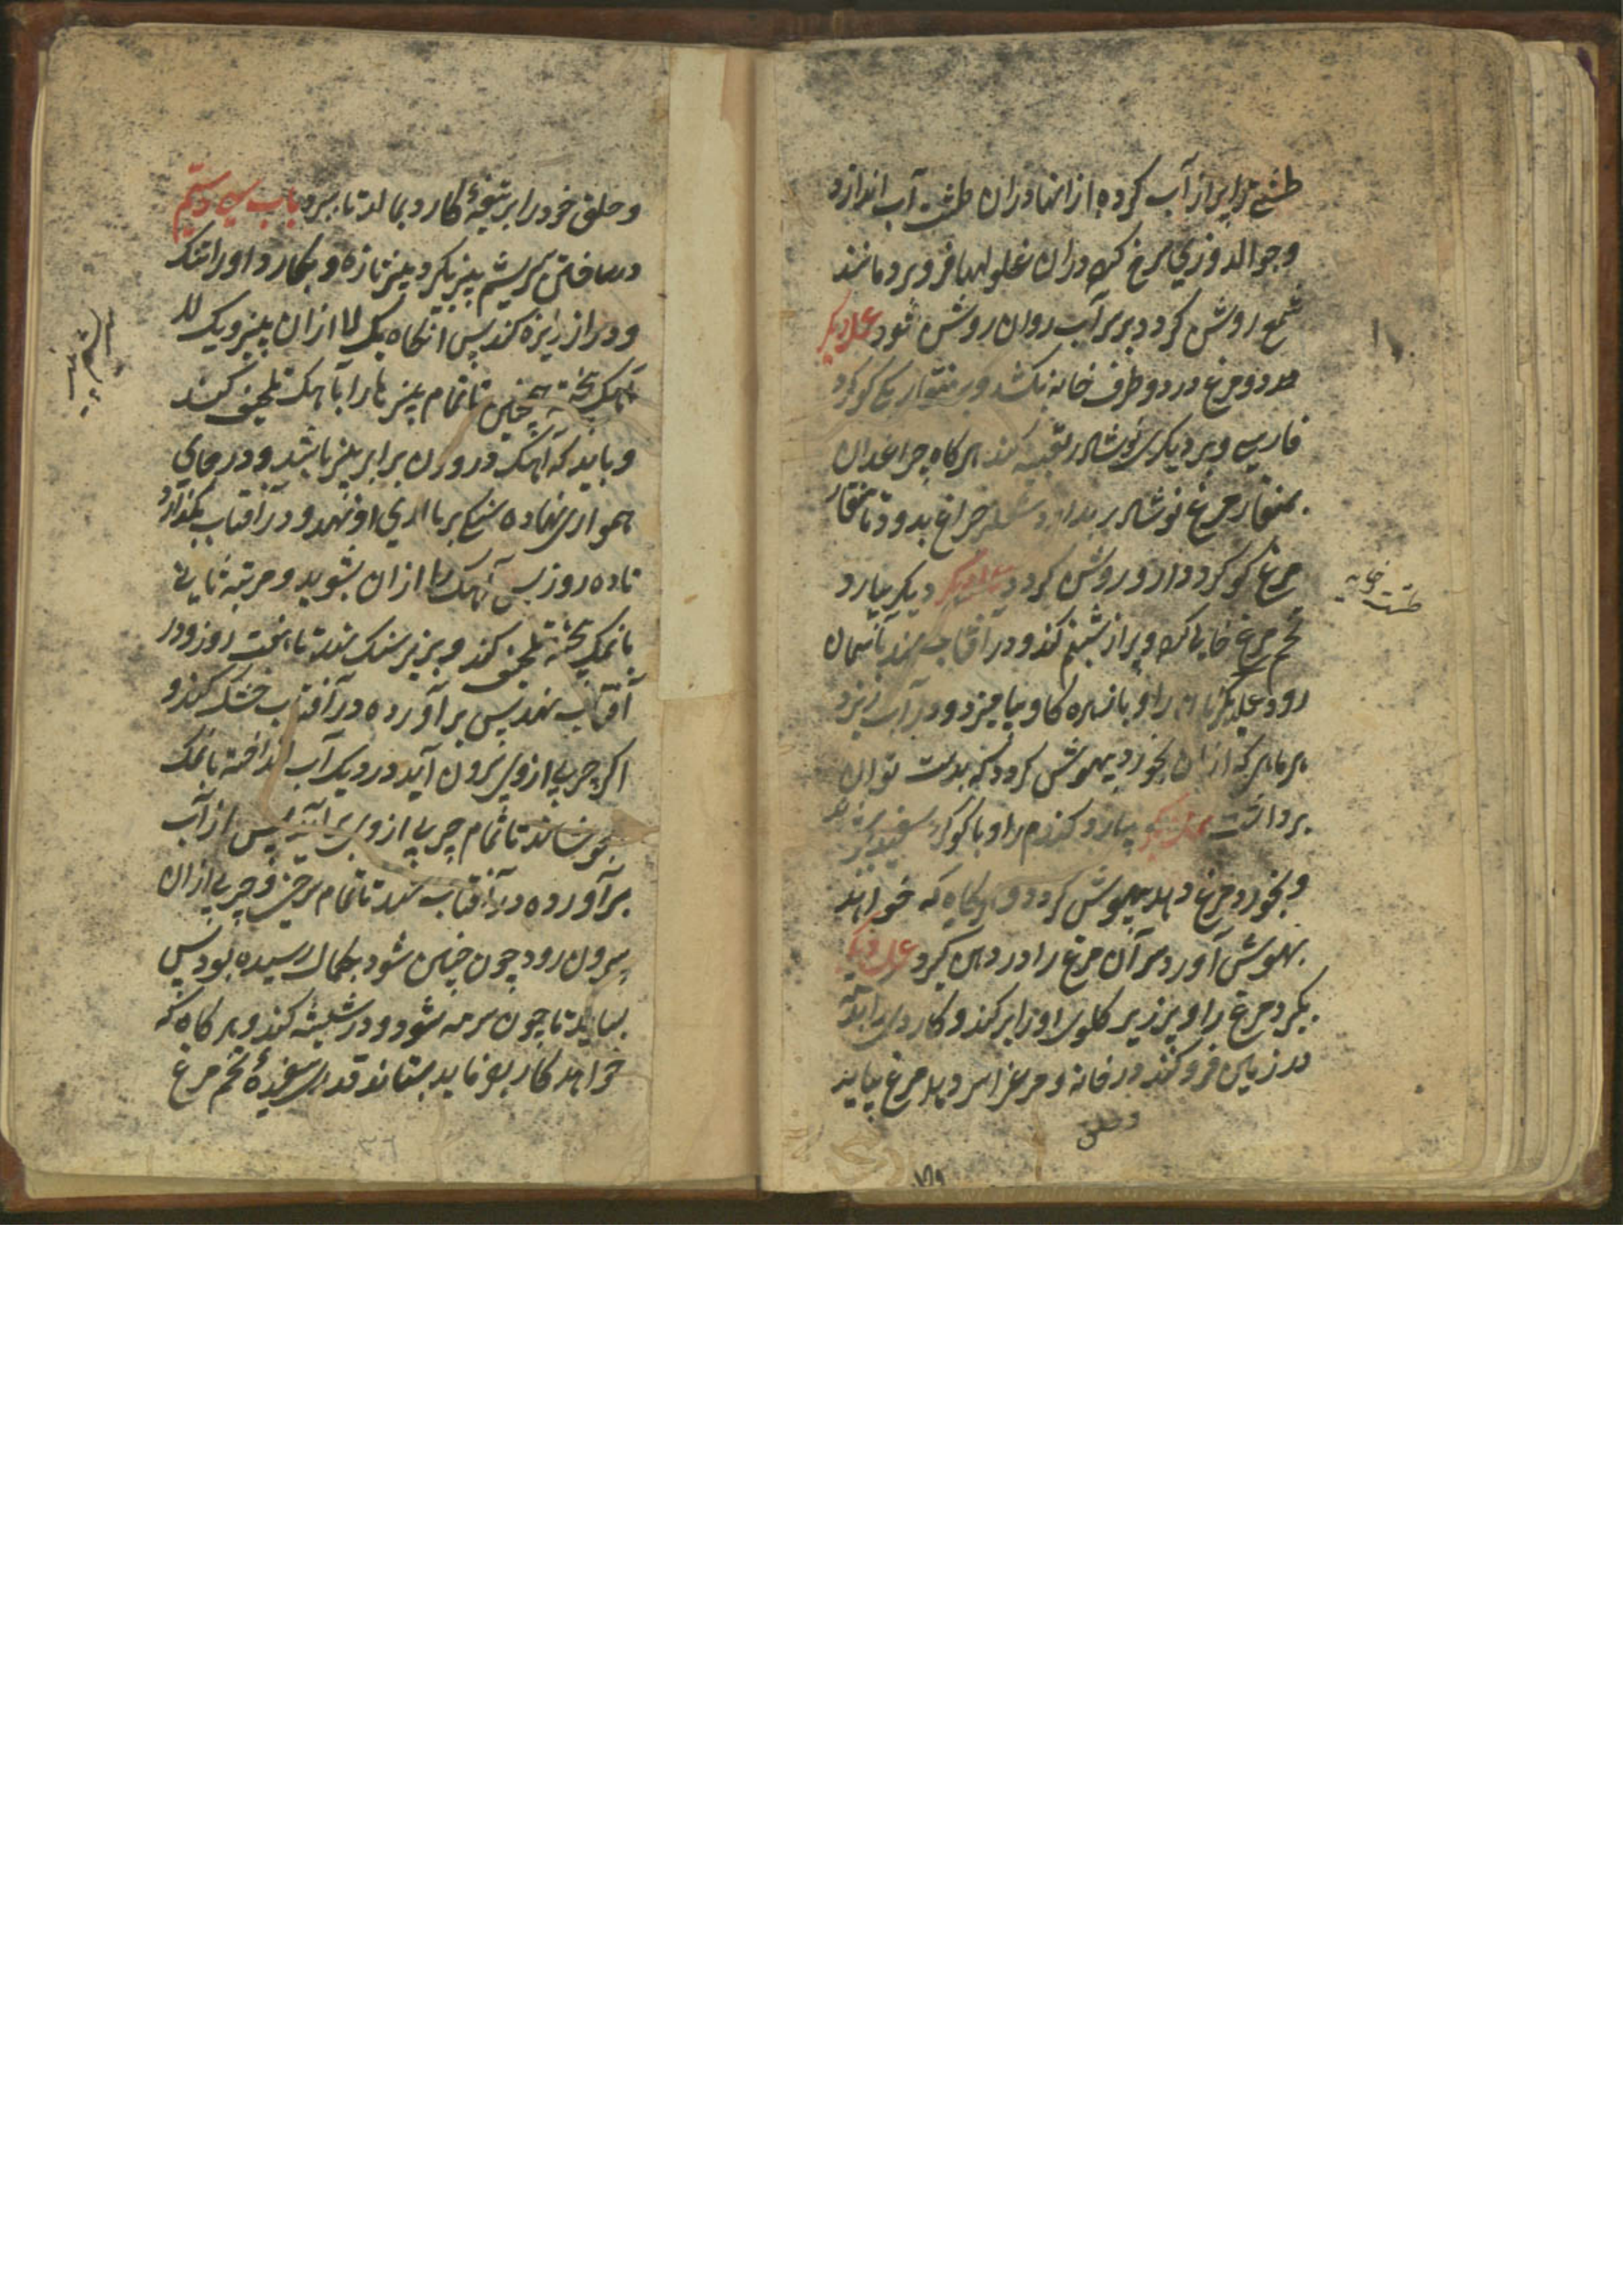 طشتی را پر از آب کرده از انها دران طشت آب اندازد
و جوالدوزی سرخ کرده دران غلولها فرو برد مانند
شمع روشن کردد بر سر آب روان روشن شود عمل دیکر
دو مرغ در دو طرف خانه بکشد و بر منقار یکی کوکرد
فارسی و بر دیکری نوشادر تعبیه کند هر کاه چراغدان
بمنقار مرغ نوشادر بدارد چراغ بدود تا منقار
مرغ کوکرد دارد و روشن کردد عمل دیکر بیارد
تخم مرغ خالی کرده و پر از شبنم کند و در آفتاب نهد بآسمان
رود عمل دیکر را و با زهره کاو بیامیزد و در آب ریزد
هر ماهی که ازان بخورد بیهوش کردد که بدست توان
برداشت عمل دیکر بیارد کندم را و با کوکرد سفید
و بخورد مرغ دهد بیهوش کردد و هر کاه که خواهد
بهوش آورد سر آن مرغ را در دهن کیرد عمل دیکر
بکیرد مرغ را و پر زیر کلوی او را بر کند و کارد
در زمین فرو کند در خانه و سر دهد مرغ بیاید
و حلق
طشت خایه
و حلق خود را بر تیغهٔ کارد بمالد تا ببرد باب سی و ستم
در ساختن سریشم پنیر بکیرد پنیر تازه و بکارد او را تنک
و دراز ریزه کند پس آنکاه یک لا ازان پنیر و یک لا
آهک پخته همچنین تا تمام پنیر ها را با آهک تلجیف کنند
و باید که آهک در وزن برابر پنیر باشد و در جای
همواری نهاده سنکی بر بالای او نهد و در آفتاب بکذارد
تا ده روز پس آهک را ازان بشوید و مرتبه ثانی
با نمک پخته تلجیف کند و بر زیر سنک نهد تا هفت روز و در
آفتاب نهد پس بر آورده در آفتاب خشک کند و
اکر چربی ازوی بیرون آید در دیک آب انداخته با نمک
بجوشاند تا تمام چربی ازوی بر آید پس از آب
بر آورده در آفتاب نهد تا تمام و چربی ازان
بیرون رود چون چنین شود بکمال رسیده بود پس
بساید تا چون سرمه شود و در شیشه کند و هر کاه که
خواهد کار بفرماید بستاند قدری سفیدهٔ تخم مرغ
سریشم پنیر